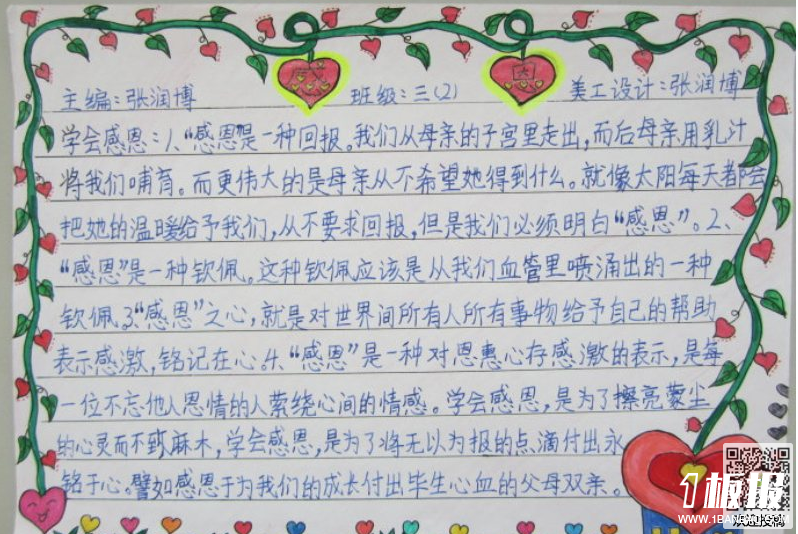 感 恩
主编:张润博 班级:三(2) 美工设计:张润博
学会感恩:1、“感恩”是一种回报。我们从母亲的子宫里走出,而后母亲用乳汁
将我们哺育。而更伟大的是母亲从不希望她得到什么。就像太阳每天都会
把她的温暖给予我们,从不要求回报,但是我们必须明白“感恩”。2、
“感恩”是一种钦佩。这种钦佩应该是从我们血管里喷涌出的一种
钦佩。3、“感恩”之心,就是对世界间所有人所有事物给予自己的帮助
表示感激,铭记在心。4、“感恩”是一种对恩惠心存感激的表示,是每
一位不忘他人恩情的人萦绕心间的情感。学会感恩,是为了擦亮蒙尘
的心灵而不到麻木,学会感恩,是为了将无以为报的点滴付出永
铭于心。譬如感恩于为我们的成长付出毕生心血的父母双亲。
1板报
WWW.1BANBAO.COM
欢迎投稿